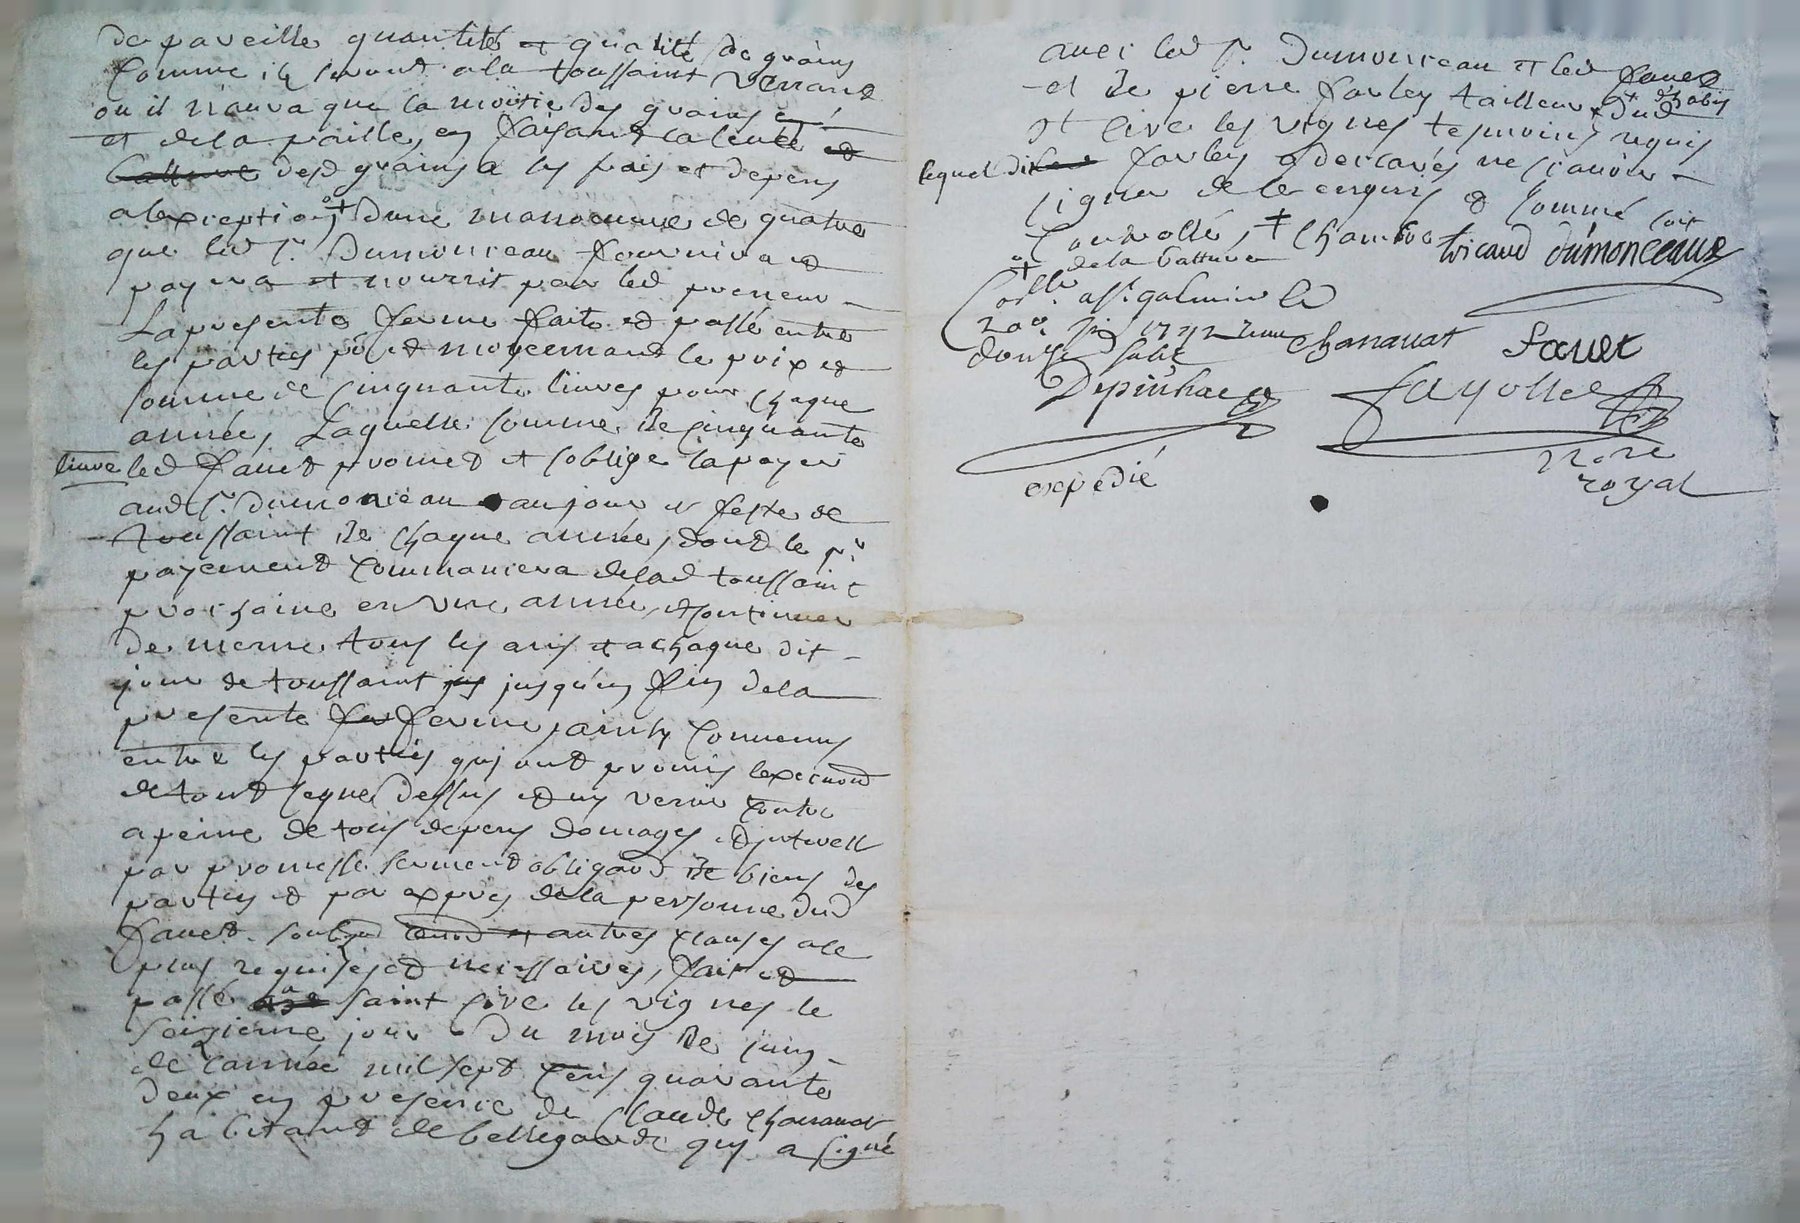 de pareille quantité et qualité de grains
comme ils seront a la toussaint derniere
ou il n'aura que la moitié des grains et
et de la paille, en faisant la levée et
batture desd grains a ses frais et depens
a lexception + dune manoeuvre de quatre
que led Sr. Dumonceau fournira et
payera et nourrit par led preneur
La presente ferme faite et passé entre
les parties po et moyennant le prix et
somme de cinquante liuves pour chaque
année, Laquelle somme de cinquante
liuve led fauet promet et soblige la payer
aud Sr. Dumonceau au jour et feste de
toussaint de chaque année, dont le pr.
payement commancera de lad toussaint
prochaine en une année, et continuer
de meme tous les ans et a chaque dit
jour de toussaint jus jusqu'en fin de la
presente fer ferme, ainsy convenus
entre les parties qui ont promis lexecuon
de tout ceque dessus et ny venir contre
a peine de tous depens domages et jnterest
par promesse serment obligaon de biens des
parties et par expres de la personne dud
fauet soubzmd renod et autres clauses a ce
plus requises et necessaires, fait et
passé a saint cire les vignes le
seizieme jour du mois de juin
de l'année mil sept cens quarante
deux en presence de Claude Chananat
habitant de bellegarde qui a signé
avec led Sr. Dumonceau et led fauet
et de pierre farley tailleur + dud
d'habis
St Cire les vignes tesmoins requis
lequel dit farley a declarés ne scavoir
signer de ce enquis et sommé soit
controllé, + chambre tricaud dumonceaux
+ de la batture
Collé a St. galmier le
20e. juin 1742
douze sols
Chananat fauet
Depinhac
fayolle
nore
royal
expédié